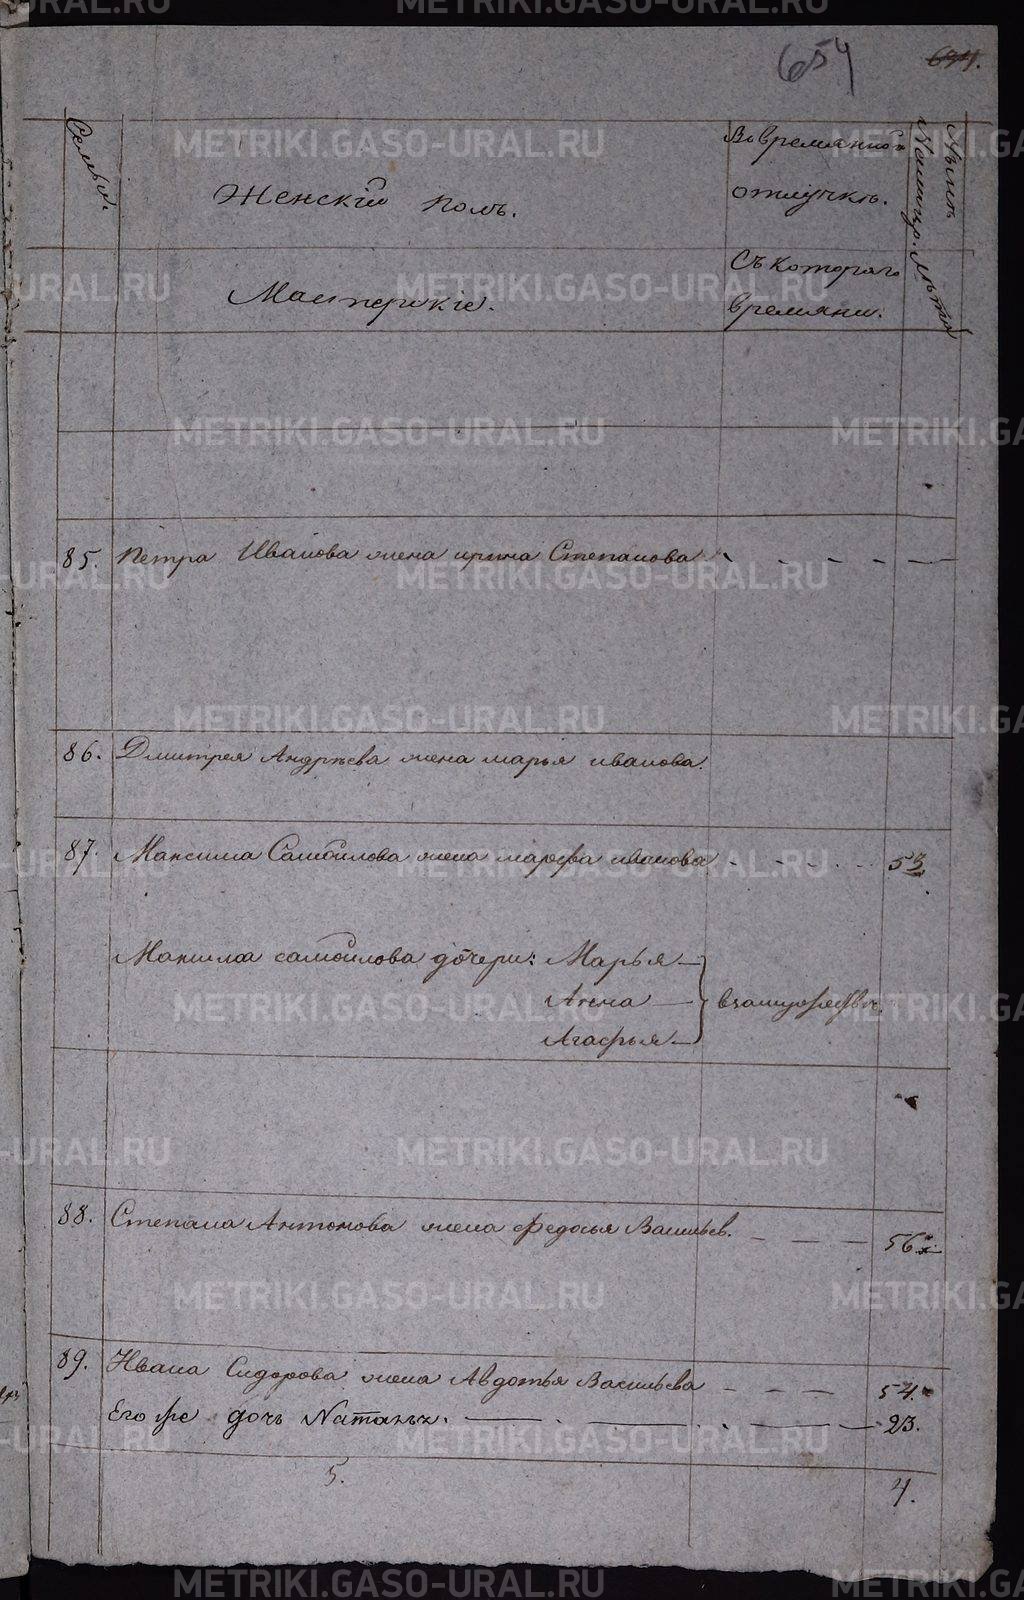 654
694.
Семьи.
Женскій полъ.
Во временной
отлучкѣ.
Нынѣ
лѣта
Мастерскіе.
Съ котораго
времяни.
85. Петра Иванова жена ирина Степанова
86. Дмитрея Андрѣева жена марья иванова.
87. Максима Самойлова жена марфа иванова 53
Максима самойлова дочери: Марья
Анна
Агафья
взамужествѣ.
88. Степана Антонова жена федосья Васильев. 56
89. Ивана Сидорова жена Авдотья Васильева 54.
Его же дочь Наталья. 23.
5. 4.
METRIKI.GASO-URAL.RU